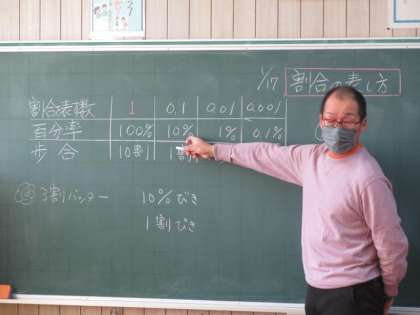 1/17 割合の表し方
割合表す数 1 0.1 0.01 0.001
百分率 100% 10% 1% 0.1%
歩合 10割 1割
3割バッター 10%びき
1割びき